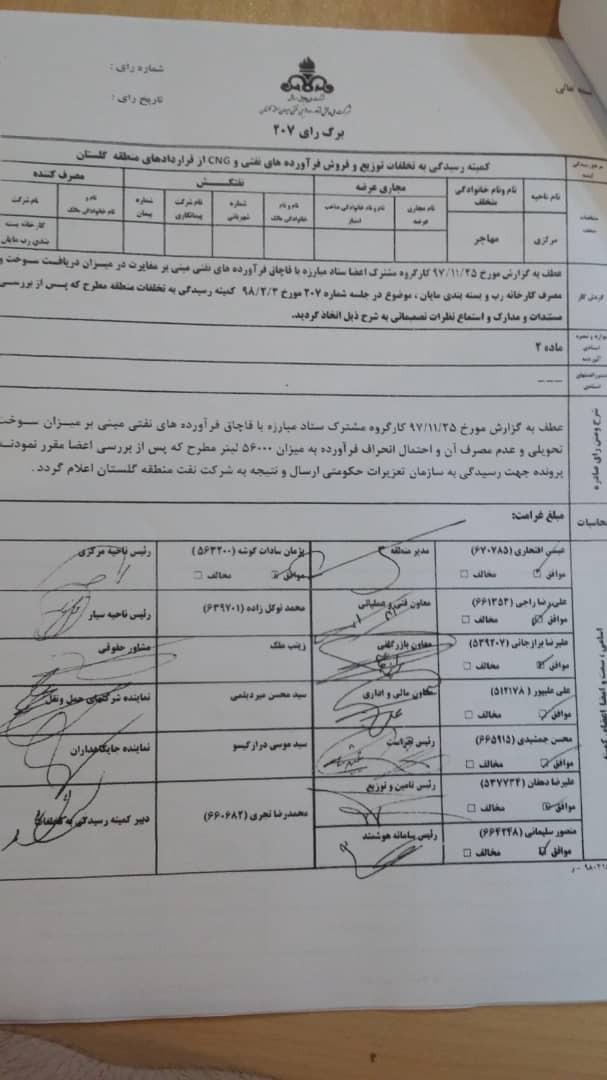 شماره رای :
تاریخ رای :
برگ رای ۲۰۷
کمیته رسیدگی به تخلفات توزیع و فروش فرآورده های نفتی و CNG از قراردادهای منطقه گلستان
نام ناحیه
نام ونام خانوادگی متخلف
مجاری عرضه
نفتکش
مصرف کننده
نام مجاری عرضه
نام و نام خانوادگی صاحب امتیاز
نام و نام خانوادگی مالک
شماره شهربانی
نام شرکت پیمانکاری
شماره پیمان
نام و نام خانوادگی مالک
نام شرکت
مرکزی
مهاجر
کارخانه بسته بندی رب مایان
گردش کار
عطف به گزارش مورخ ۹۷/۱۱/۲۵ کارگروه مشترک اعضا ستاد مبارزه با قاچاق فرآورده های نفتی مبنی بر مغایرت در میزان دریافت سوخت و
مصرف کارخانه رب و بسته بندی مایان ، موضوع در جلسه شماره ۲۰۷ مورخ ۹۸/۲/۳ کمیته رسیدگی به تخلفات منطقه مطرح که پس از بررسی
مستندات و مدارک و استماع نظرات تصمیماتی به شرح ذیل اتخاذ گردید.
ماده ۲
---
شرح ومتن رای صادره
عطف به گزارش مورخ ۹۷/۱۱/۲۵ کارگروه مشترک ستاد مبارزه با قاچاق فرآورده های نفتی مبنی بر میزان سوخت
تحویلی و عدم مصرف آن و احتمال انحراف فرآورده به میزان ۵۶۰۰۰ لیتر مطرح که پس از بررسی اعضا مقرر نمودند
پرونده جهت رسیدگی به سازمان تعزیرات حکومتی ارسال و نتیجه به شرکت نفت منطقه گلستان اعلام گردد .
محاسبات
مبلغ غرامت:
عیسی افتخاری (۶۷۰۷۸۵)
موافق مخالف
مدیر منطقه
پژمان سادات کوشه (۵۶۳۲۰۰)
موافق مخالف
رئیس ناحیه مرکزی
علی رضا راجی (۶۶۱۳۵۳)
موافق مخالف
معاون فنی و عملیاتی
محمد توکل زاده (۶۳۹۷۰۱)
رئیس ناحیه سیار
علیرضا برازجانی (۵۳۹۲۰۷)
موافق مخالف
معاون بازرگانی
زینب ملک
مشاور حقوقی
علی علیپور (۵۱۲۱۷۸)
موافق مخالف
معاون مالی و اداری
سید محسن میردیلمی
نماینده شرکتهای حمل ونقل
محسن جمشیدی (۶۶۵۹۱۵)
موافق مخالف
رئیس حراست
سید موسی درازگیسو
نماینده جایگاهداران
علیرضا دهقان (۵۳۷۷۳۴)
موافق مخالف
رئیس تامین و توزیع
محمدرضا تجری (۶۶۰۶۸۲)
دبیر کمیته رسیدگی به تخلفات
منصور سلیمانی (۶۶۴۲۴۸)
موافق مخالف
رئیس سامانه هوشمند